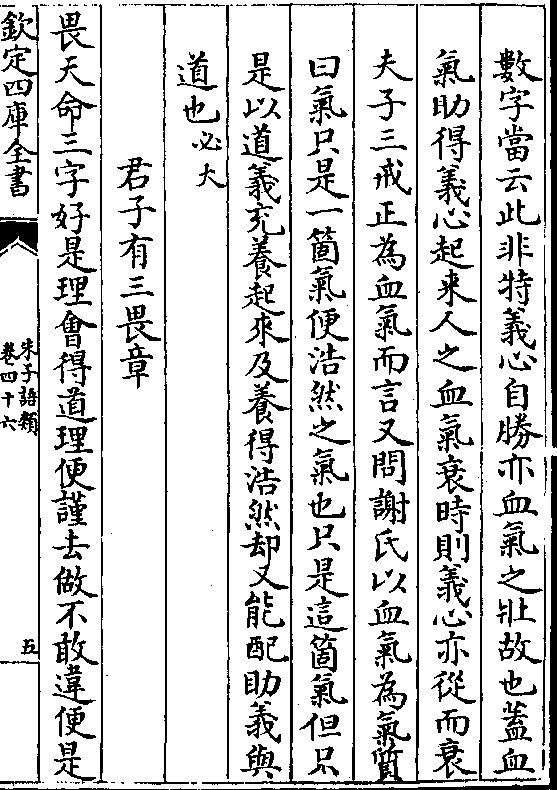 數字當云此非特義心自勝亦血氣之壯故也蓋血
氣助得義心起来人之血氣衰時則義心亦從而衰
夫子三戒正為血氣而言又問謝氏以血氣為氣質
曰氣只是一箇氣便浩然之氣也只是這箇氣但只
是以道義充養起來及養得浩然却又能配助義與
道也必大
君子有三畏章
畏天命三字好是理會得道理便謹去做不敢違便是
欽定四庫全書
朱子語類
卷四十六
五